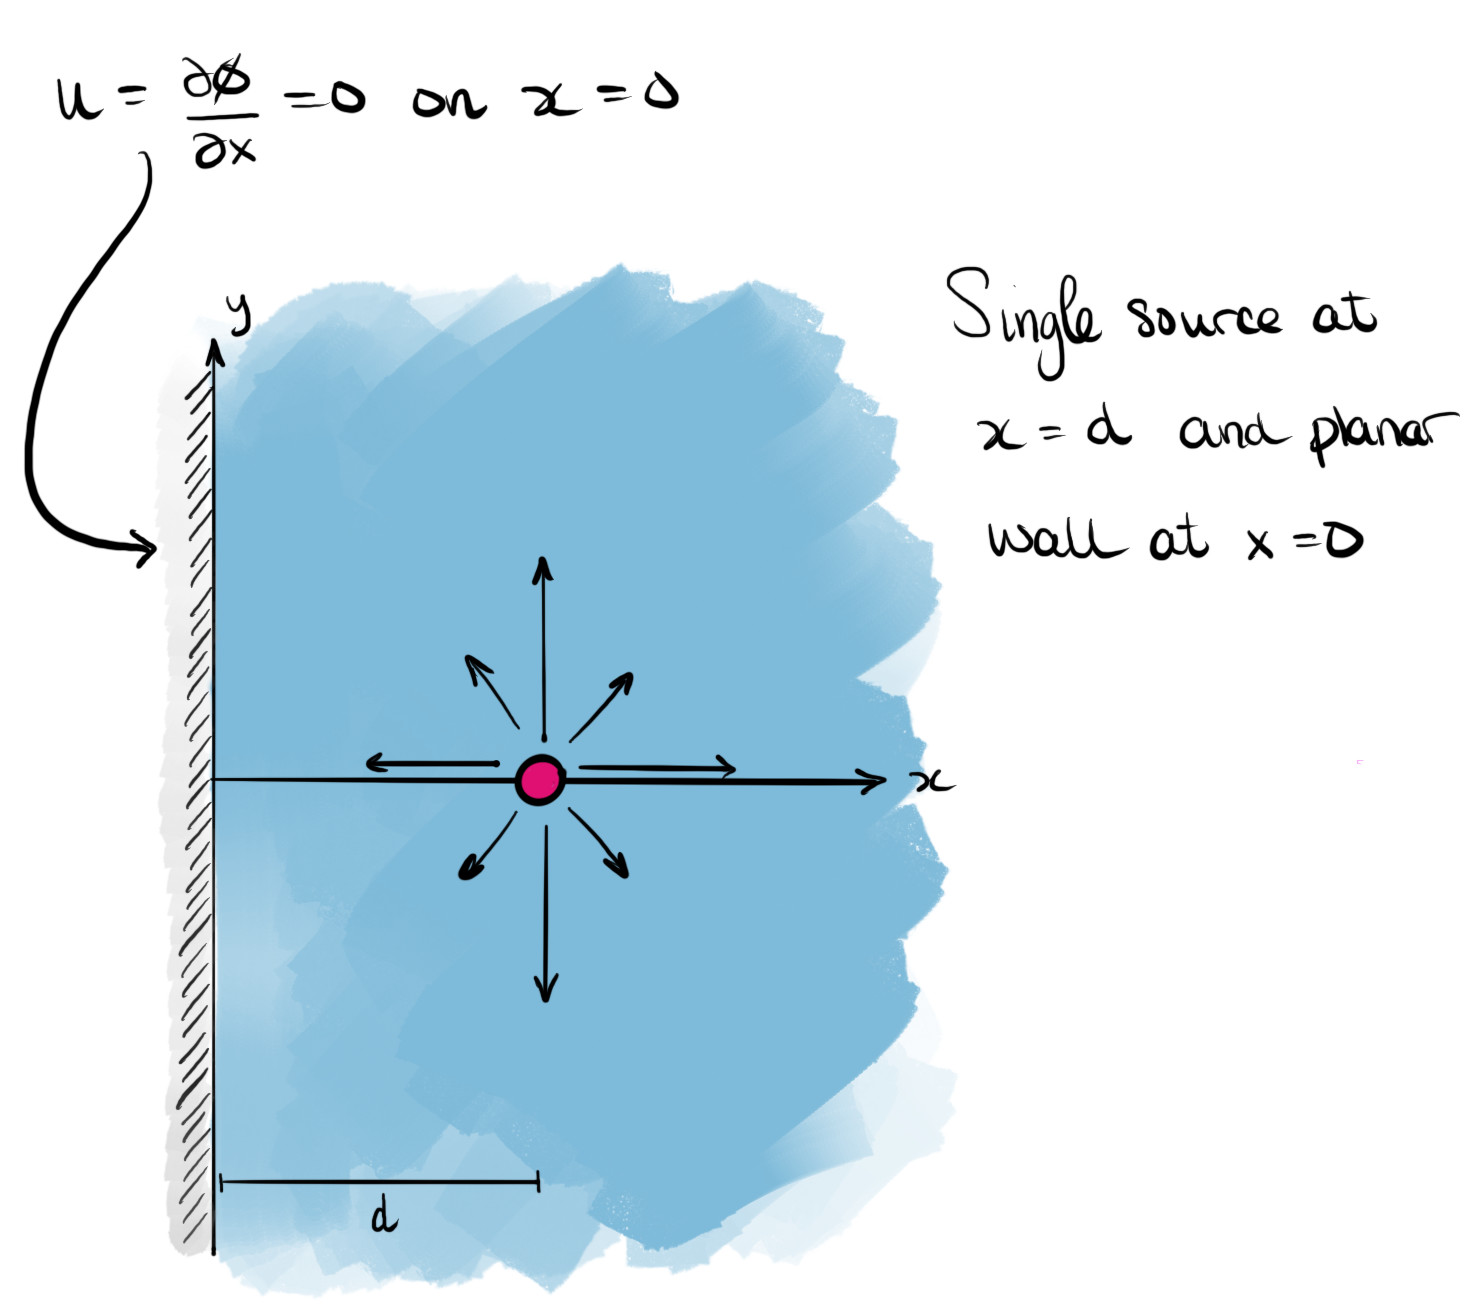 u = ∂ϕ/∂x = 0 on x = 0
y
Single source at
x = d and planar
wall at x = 0
x
d